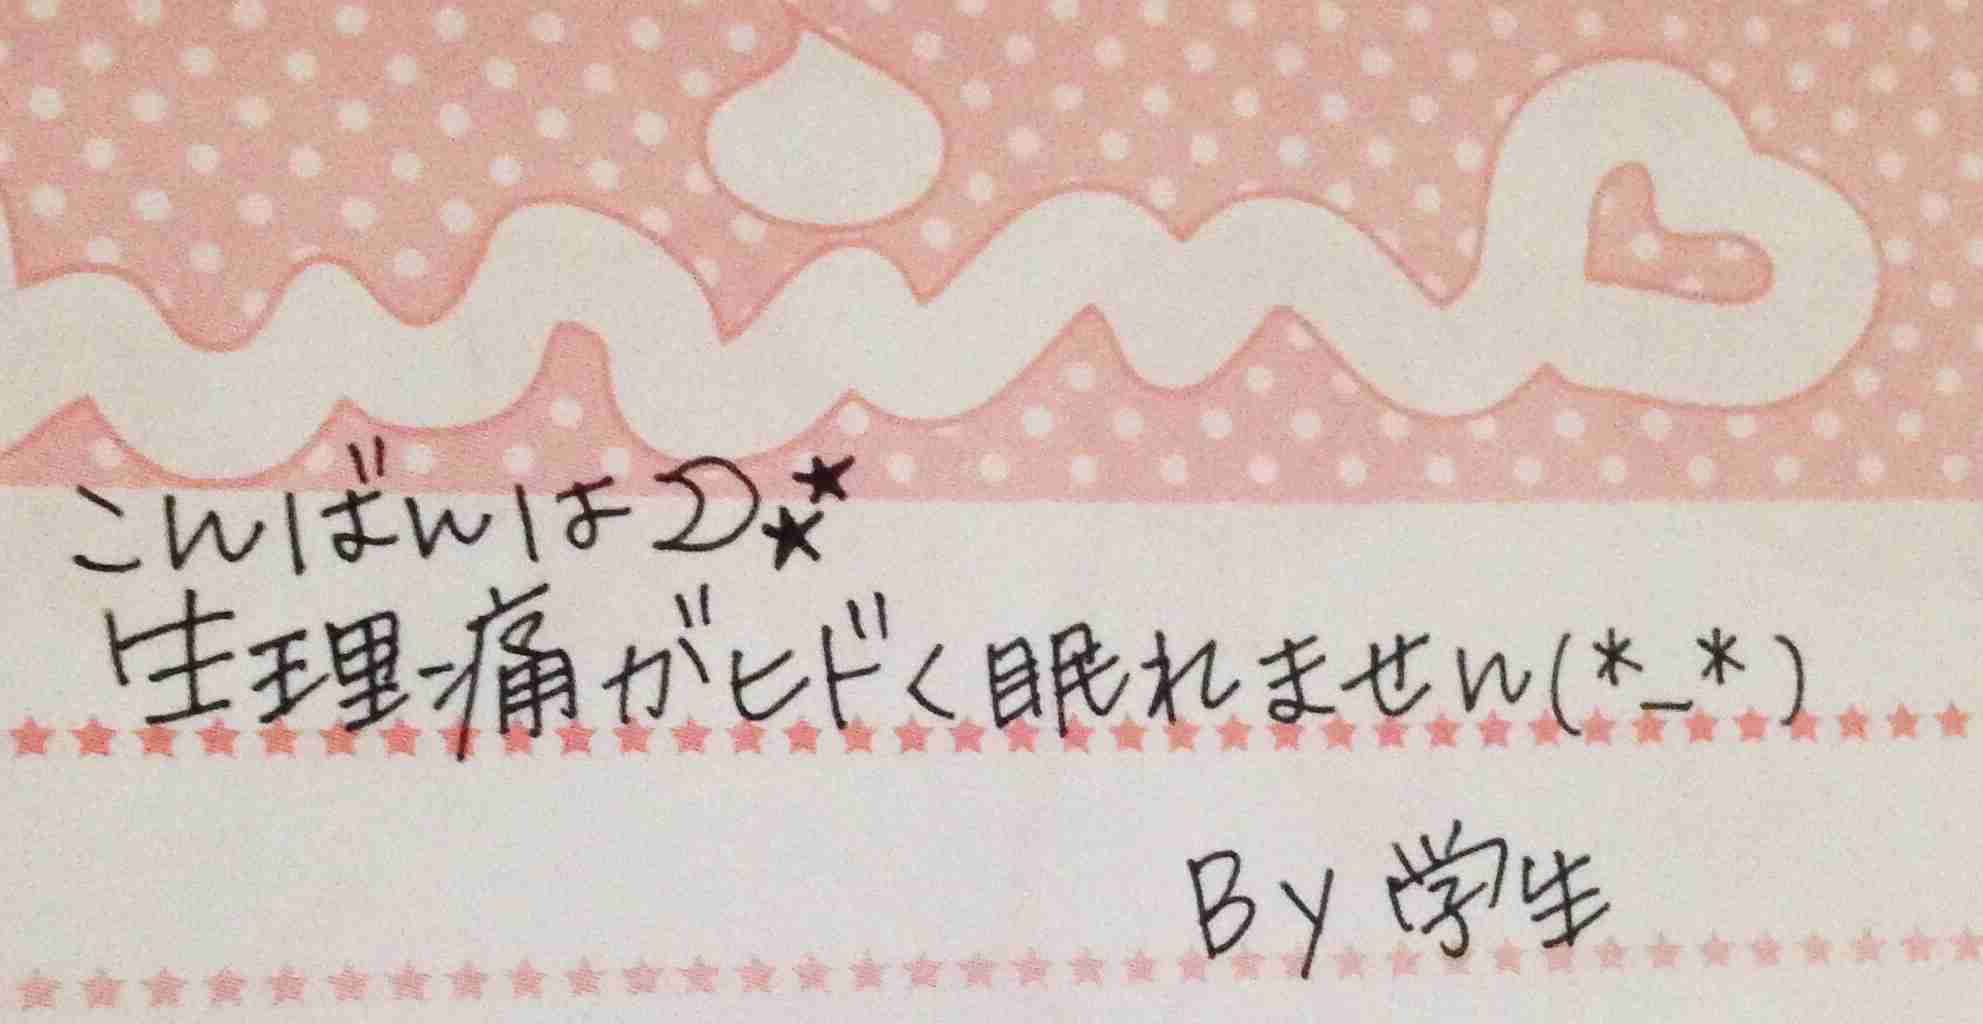 こんばんは☽★★
生理痛がヒドく眠れません(*_*)
By 学生